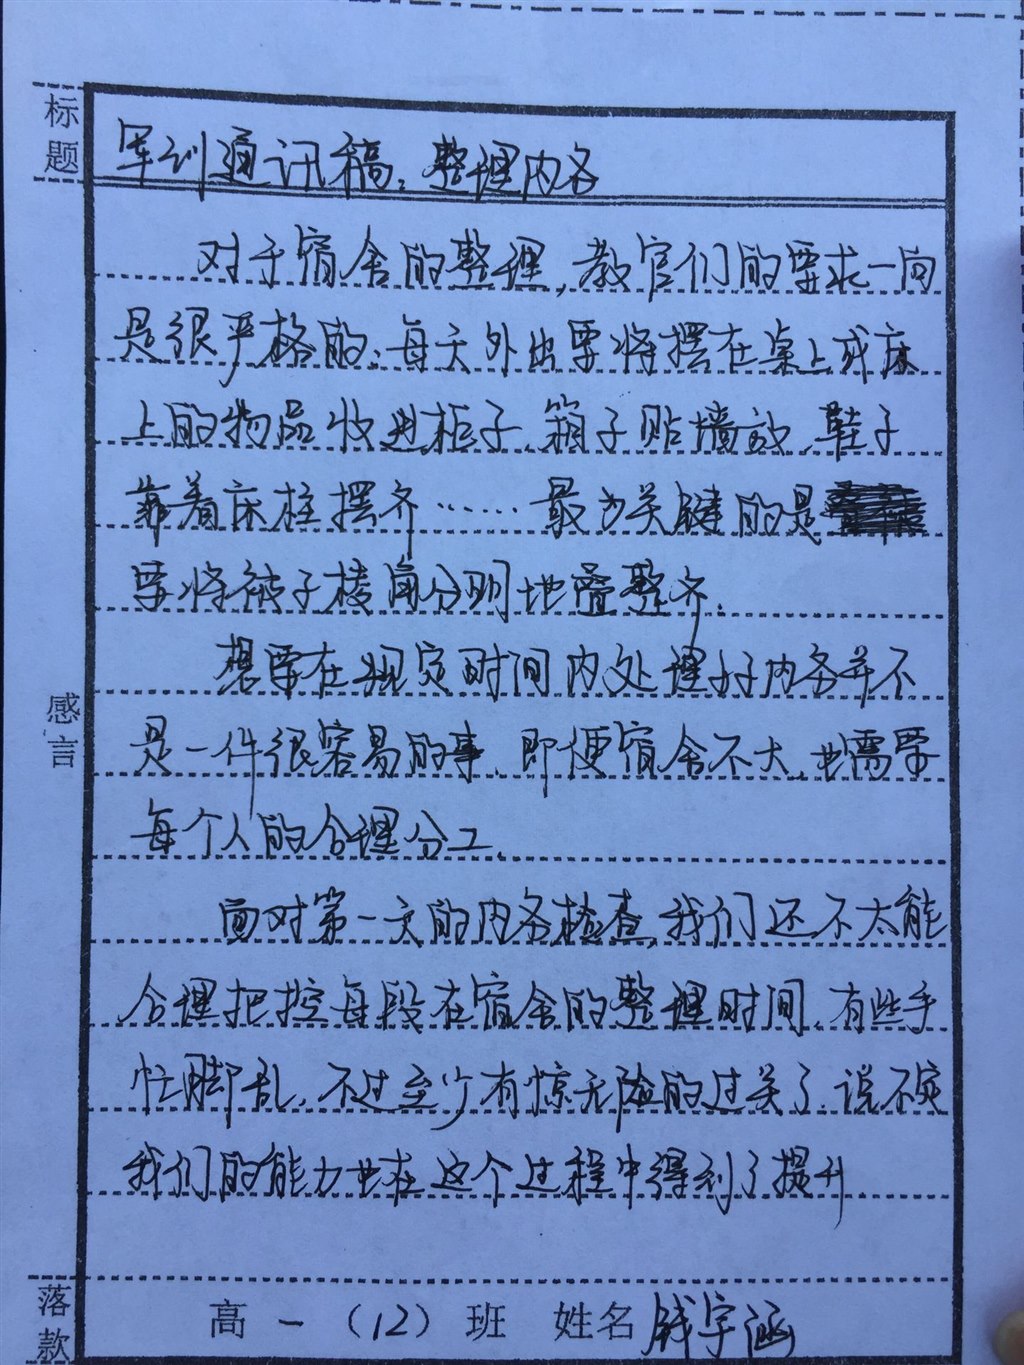 标题
军训通讯稿：整理内务
对于宿舍的整理，教官们的要求一向
是很严格的：每天外出要将摆在桌上或床
上的物品收进柜子，箱子贴墙放，鞋子
靠着床柱摆齐……最为关键的是
要将被子棱角分明地叠整齐。
想要在规定时间内处理好内务并不
是一件很容易的事，即便宿舍不大，也需要
每个人的合理分工。
感言
面对第一天的内务检查，我们还不太能
合理把控每段在宿舍的整理时间，有些手
忙脚乱，不过至少有惊无险的过关了，说不定
我们的能力也在这个过程中得到了提升
落款
高一（12）班 姓名 钱宇涵